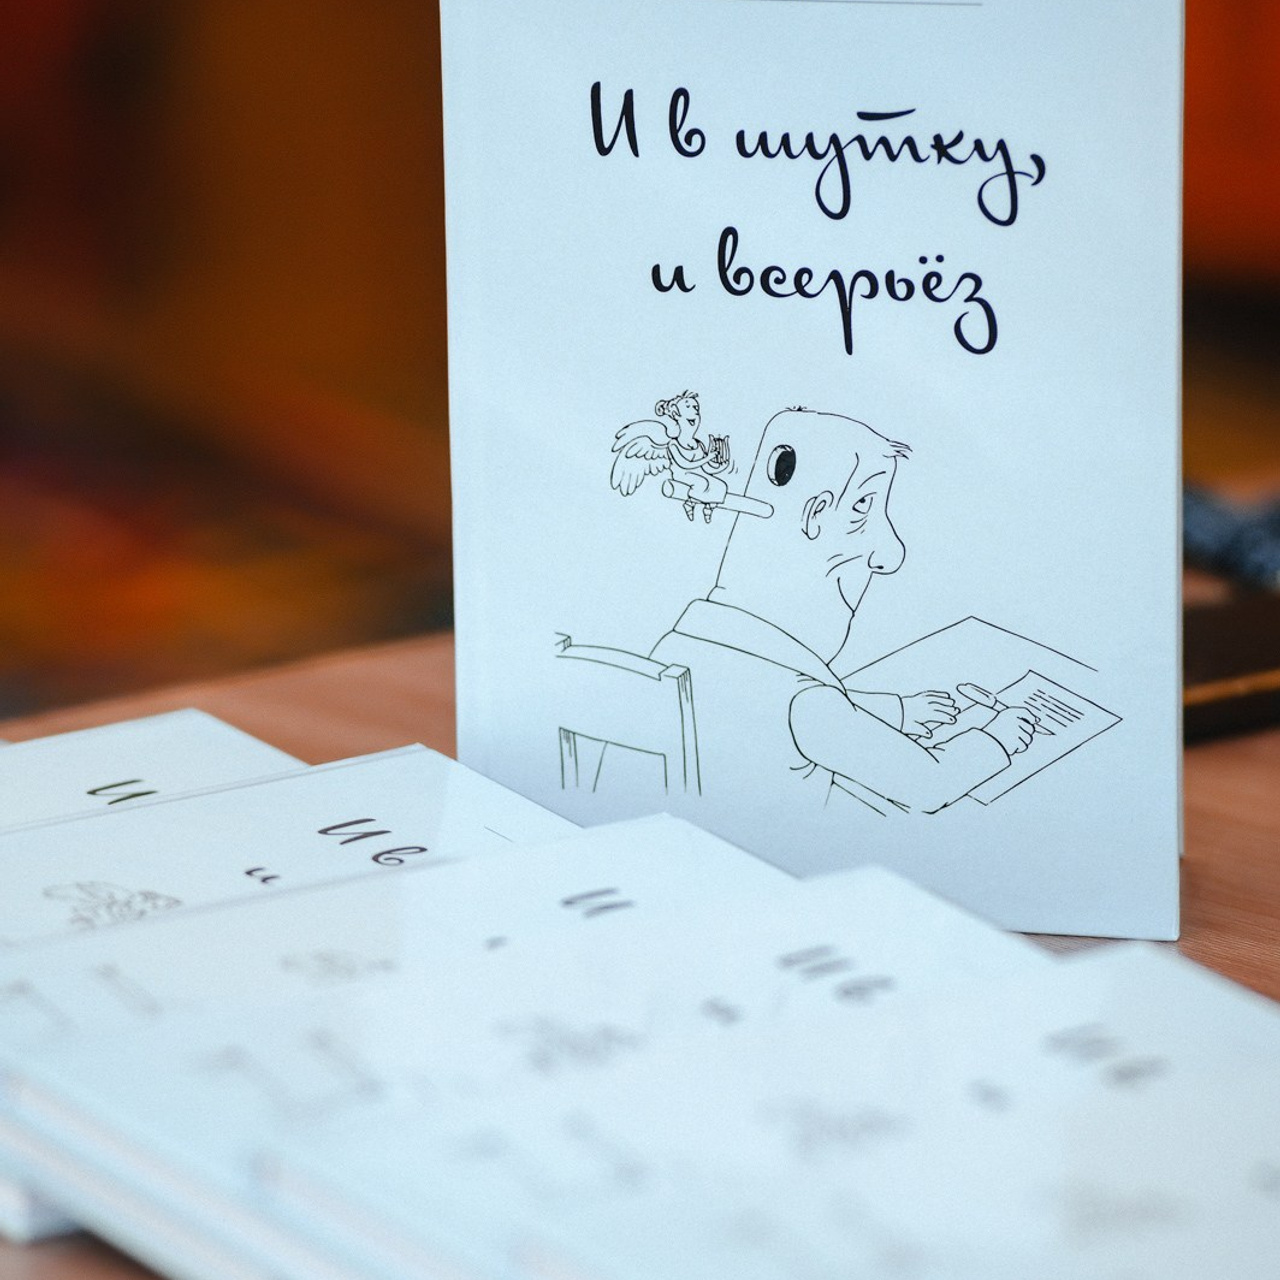 И в шутку,
и всерьёз
И
И в
и
И
И в